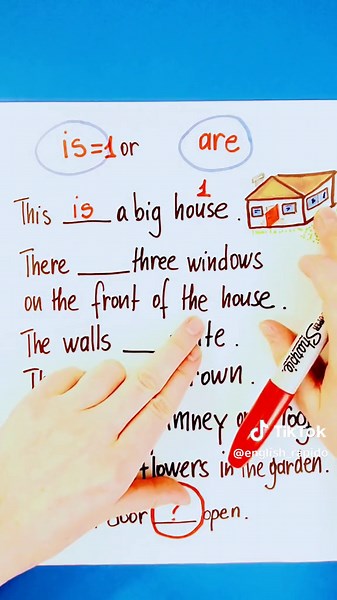 is=1 or are
1
This is a big house.
There ___ three windows
on the front of the house.
The walls __ te.
rown.
mney
flowers in the garden.
? open.
Sharpie
TikTok
@english_rapido